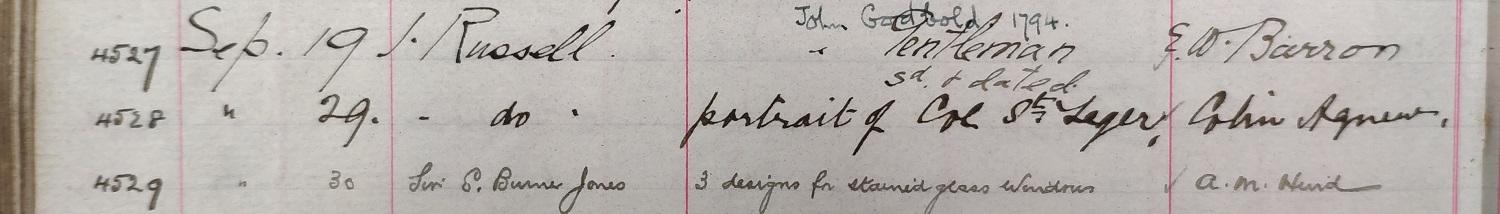 John Godbold. 1794.
4527 Sep. 19 J. Russell. " Gentleman E. W. Barron
sd. & dated.
4528 " 29. - do " portrait of Col St. Leger, Colin Agnew.
4529 " 30 Sir E. Burne Jones 3 designs for stained glass windows A. M. Hind